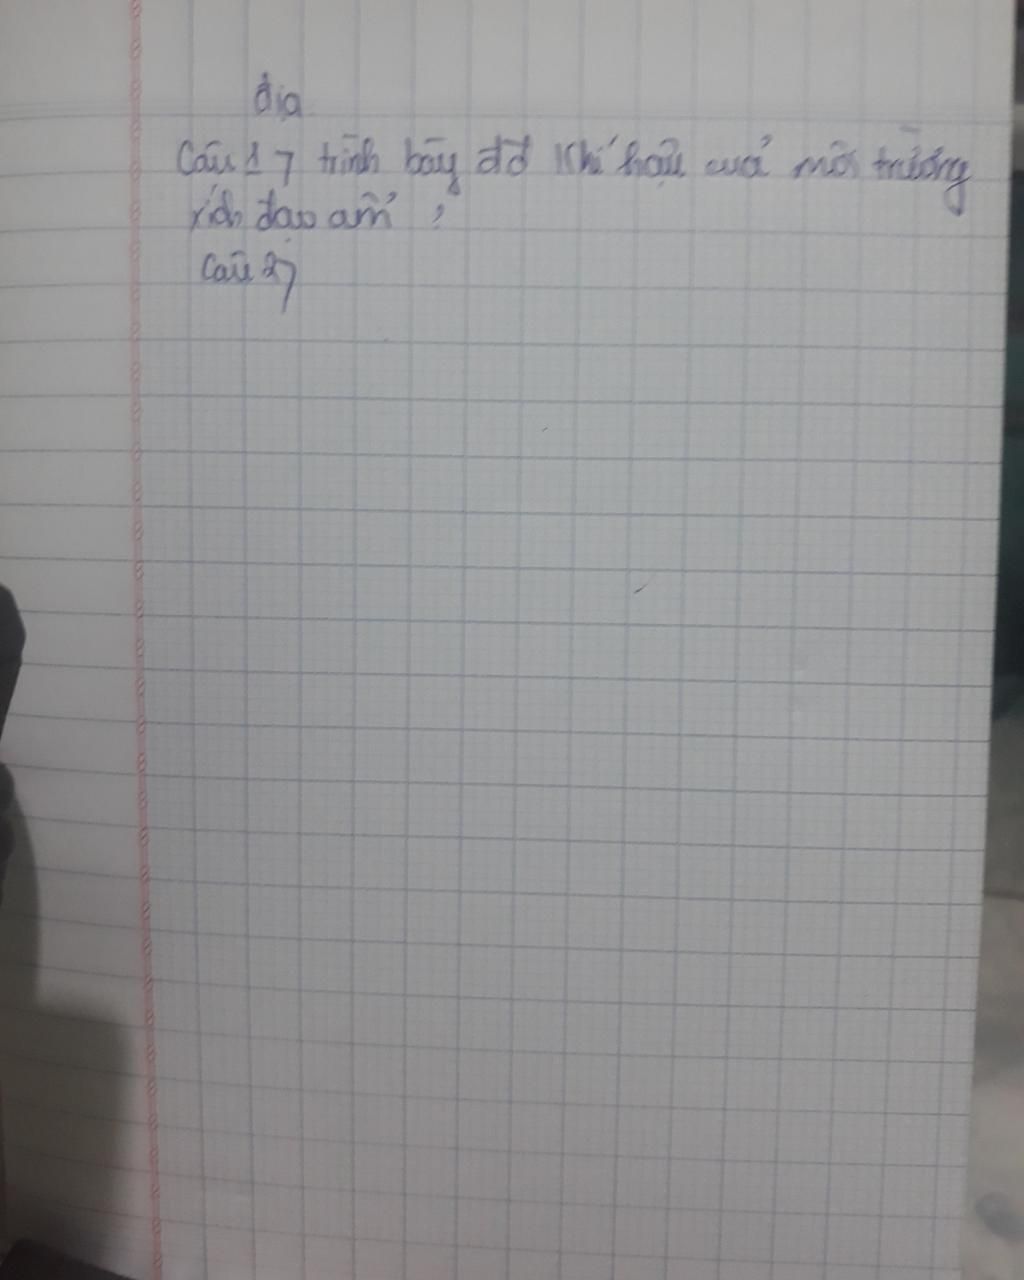 địa
Câu 1, trình bày đđ khí hậu của môi trường
xích đạo ẩm ?
Câu 2,